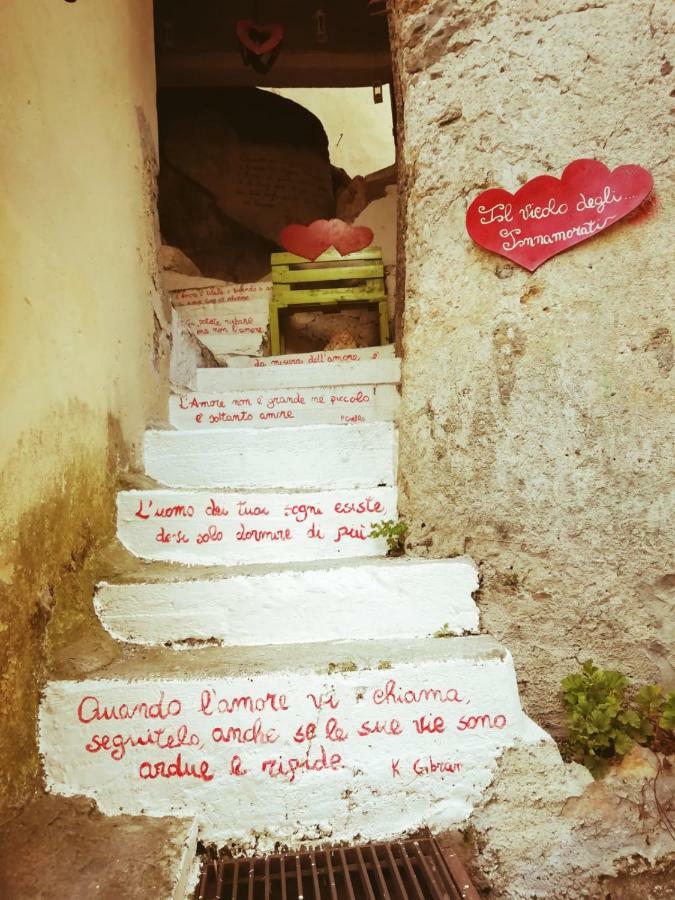 Il vicolo degli...
Innamorati
da misura dell'amore è
L'Amore non è grande né piccolo
è soltanto amore
L'uomo dei tuoi sogni esiste,
devi solo dormire di più
Quando l'amore vi chiama,
seguitelo, anche se le sue vie sono
ardue e ripide.
K Gibran